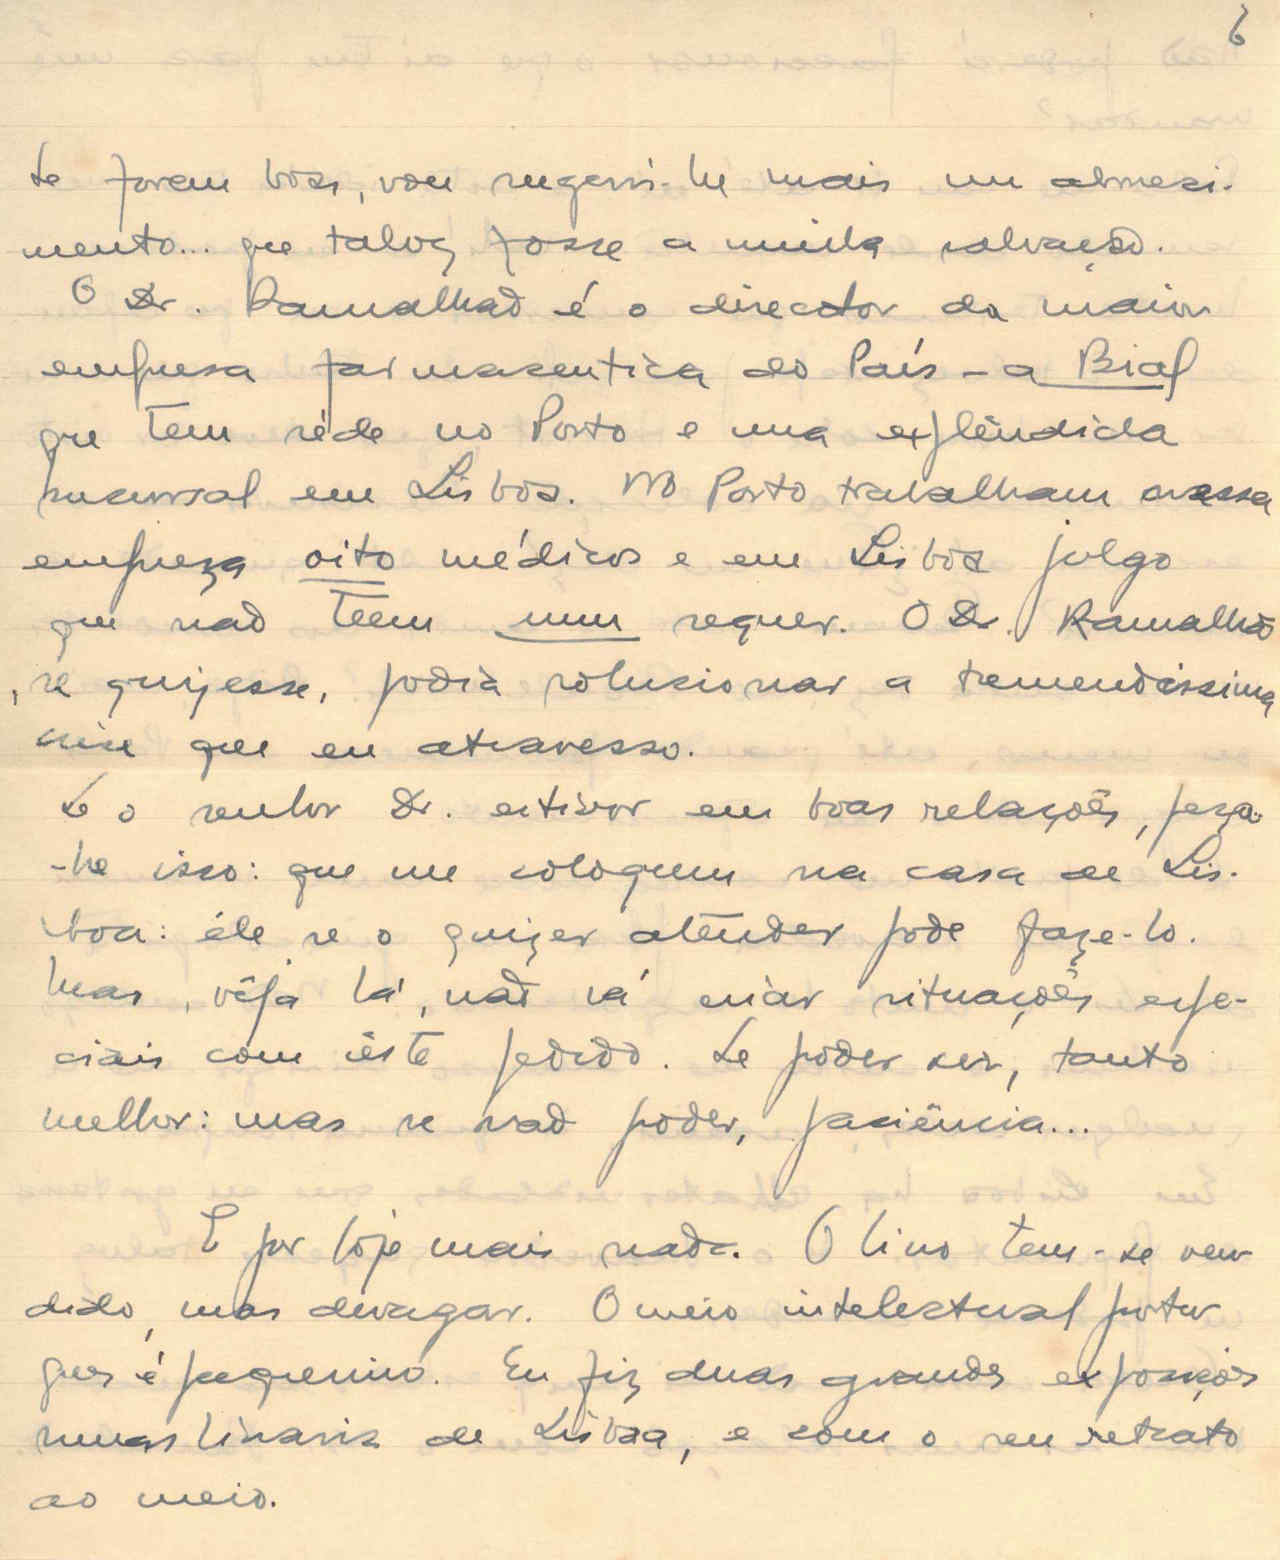 6
Se forem boas, vou sugerir-lhe mais um
mento... que talvez fosse a minha salvação.
O Dr. Ramalhão é o director da maior
empresa farmaceutica do País - a Bial
que tem séde no Porto e uma explêndida
sucursal em Lisboa. No Porto trabalham nessa
empreza oito médicos e em Lisboa julgo
que não teem num sequer. O Dr. Ramalhão
, se quizesse, podia solucionar a tremendissima
crise que eu atravesso.
Se o senhor Dr. estiver em boas relações, peça-
-lhe isso: que me coloquem na casa de Lis-
boa: êle se o quizer atender pode faze-lo.
Mas, vêja lá, não vá criar situações espe-
ciais com êste pedido. Se poder ser, tanto
melhor: mas se não poder, paciência...
E por hoje mais nada. O livro tem-se ven-
dido, mas devagar. O meio intelectual portu-
guês é pequenino. Eu fiz duas grandes exposições
numas livrarias de Lisboa, e com o seu retrato
ao meio.